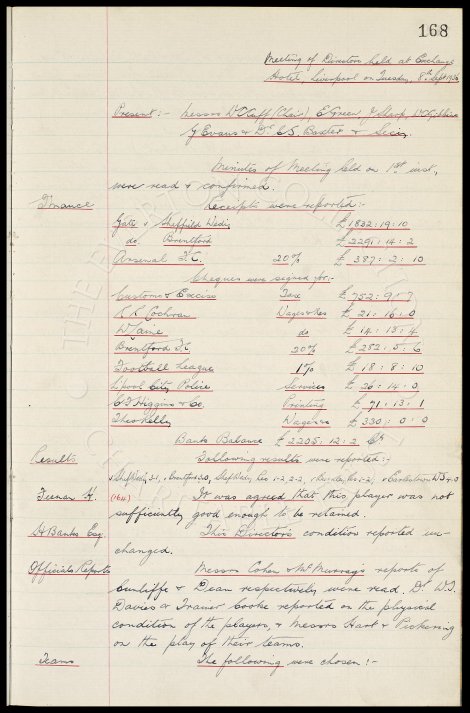 168
Meeting of Directors held at Exchange
Hotel, Liverpool on Tuesday, 8th Sept 1936
Present:- Messrs W.C. Cuff (Chair), E. Green, J. Sharp,
G Evans & Dr. C.S. Baxter & Secy.
Minutes of Meeting held on 1st inst.,
were read & confirmed.
Finance Receipts were reported:-
Gate v Sheffield Wedy £1832:19:10
do. Brentford £2291:14:2
Arsenal F.C. 20% £387:2:10
Cheques were signed for:-
Customs & Excise Tax £752:9:7
Cochran Wages & Res £21:16:0
do £14:18:4
Brentford F.C. 20% £282:5:6
Football League 1% £18:8:10
L'pool City Police Services £26:14:0
C.J. Higgins & Co. Printing £71:13:1
Theo Kelly Wages &c £330:0:0
Bank Balance £2205:12:2 Cr
Results Following results were reported:-
v Sheff Wedy 3.1, v Brentford 3.0, Sheff Wedy Res 1-2, 2-2,
Feenan H. It was agreed that this player was not
sufficiently good enough to be retained.
A Banks Esq. This Director's condition reported un-
changed.
Officials Reports Messrs Cohen & McMurray's reports of
Cunliffe & Dean respectively were read. Dr. W.J.
Davies & Trainer Cooke reported on the physical
condition of the players, & Messrs Hart & Pickering
on the play of their teams.
Teams The following were chosen:-